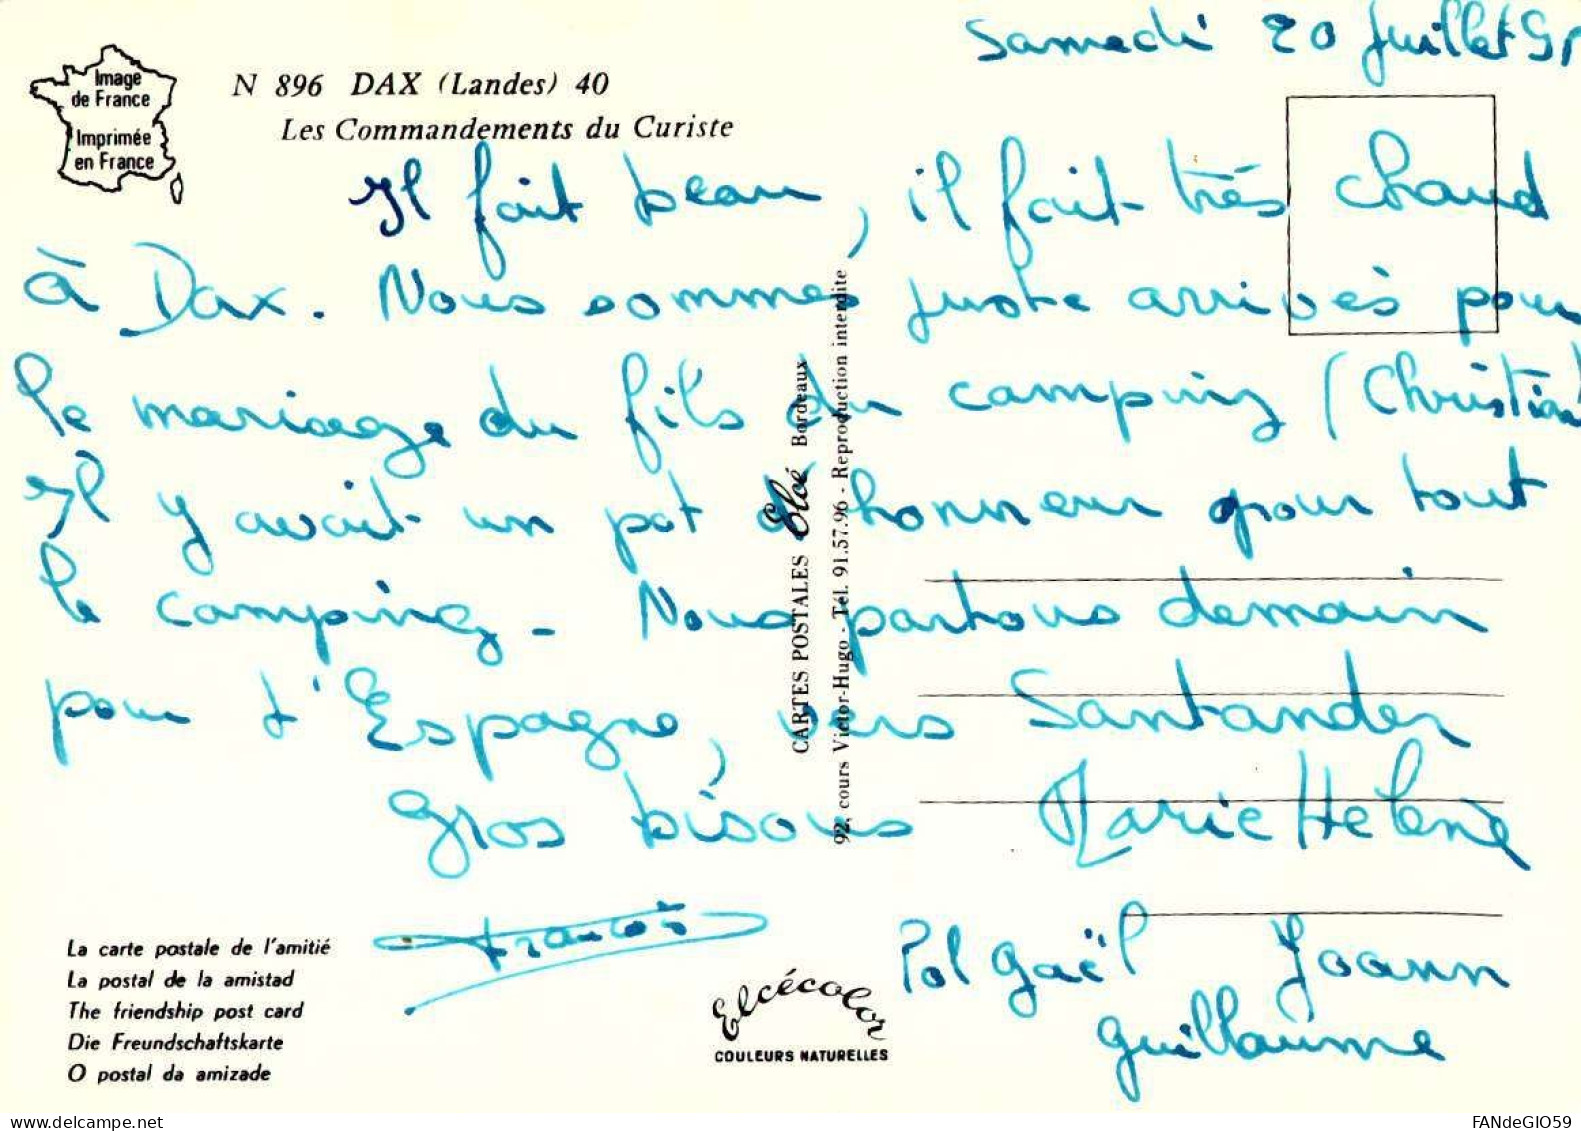 Samedi 20 Juillet 91
Image
de France
Imprimée
en France
N 896 DAX (Landes) 40
Les Commandements du Curiste
Il fait beau, il fait très chaud
à Dax. Nous sommes juste arrivés pour
le mariage du fils du camping (Christian)
Il y avait un pot d'honneur pour tout
le camping - Nous partons demain
pour l'Espagne, vers Santander
gros bisous Marie Helène
François
Pol Gaël Yoann
Guillaume
CARTES POSTALES Elcé Bordeaux
92, cours Victor-Hugo - Tél. 91.57.96 - Reproduction interdite
La carte postale de l'amitié
La postal de la amistad
The friendship post card
Die Freundschaftskarte
O postal da amizade
Elcécolor
COULEURS NATURELLES
FANdeGIO59